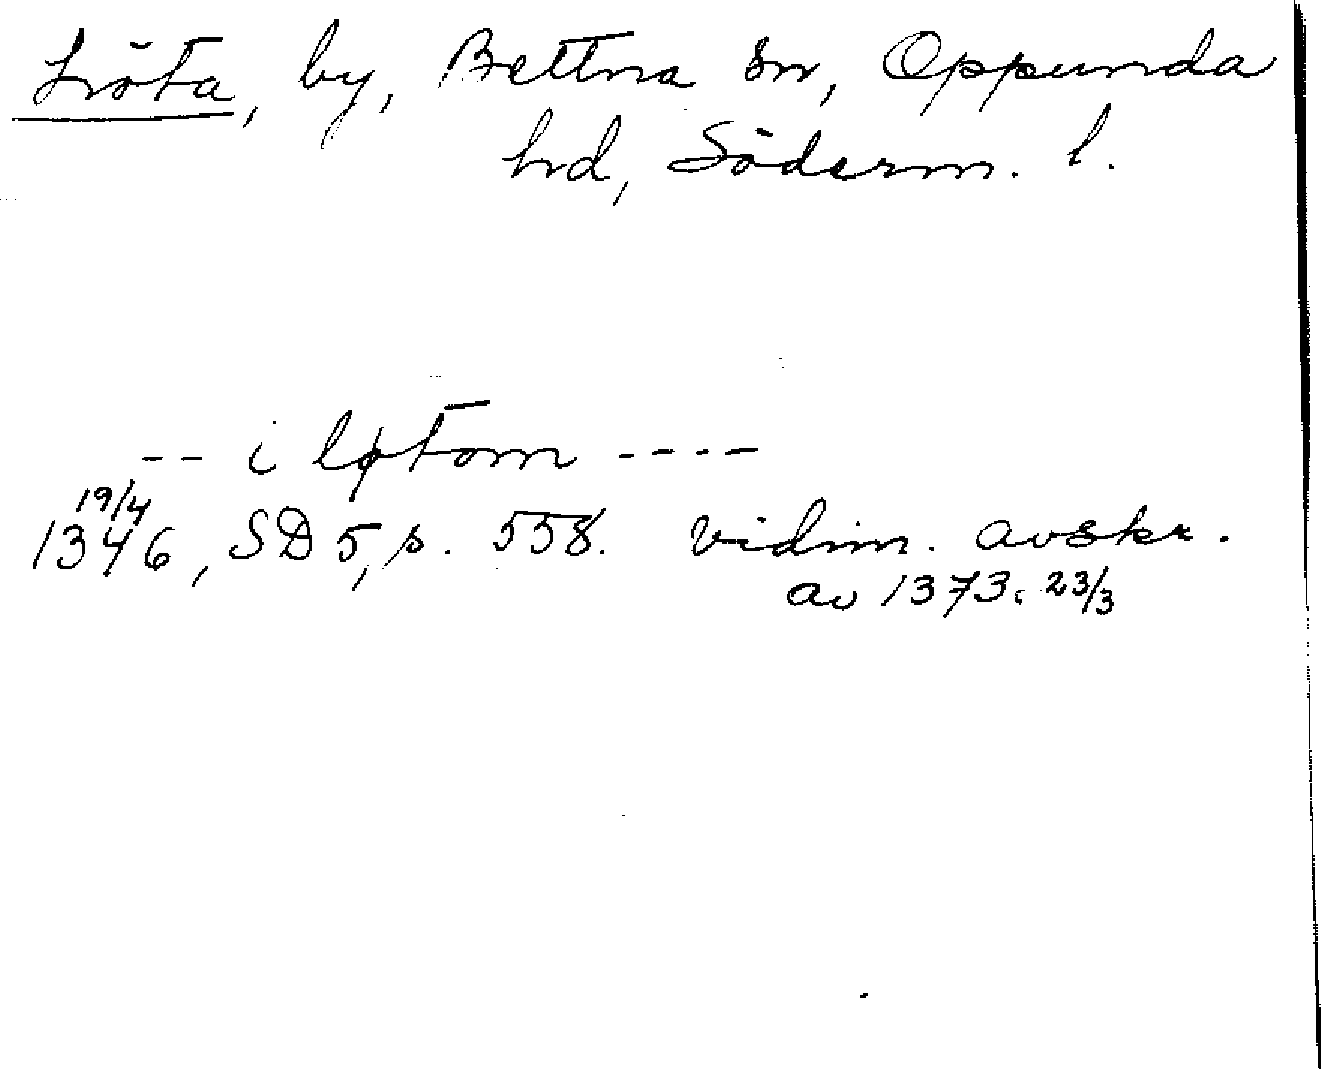 Löta, by, Bettna sn, Oppunda
hd, Söderm. l.
-- i løtom ----
19/4
1346, SD 5, s. 558. vidim. avskr.
av 1373. 23/3